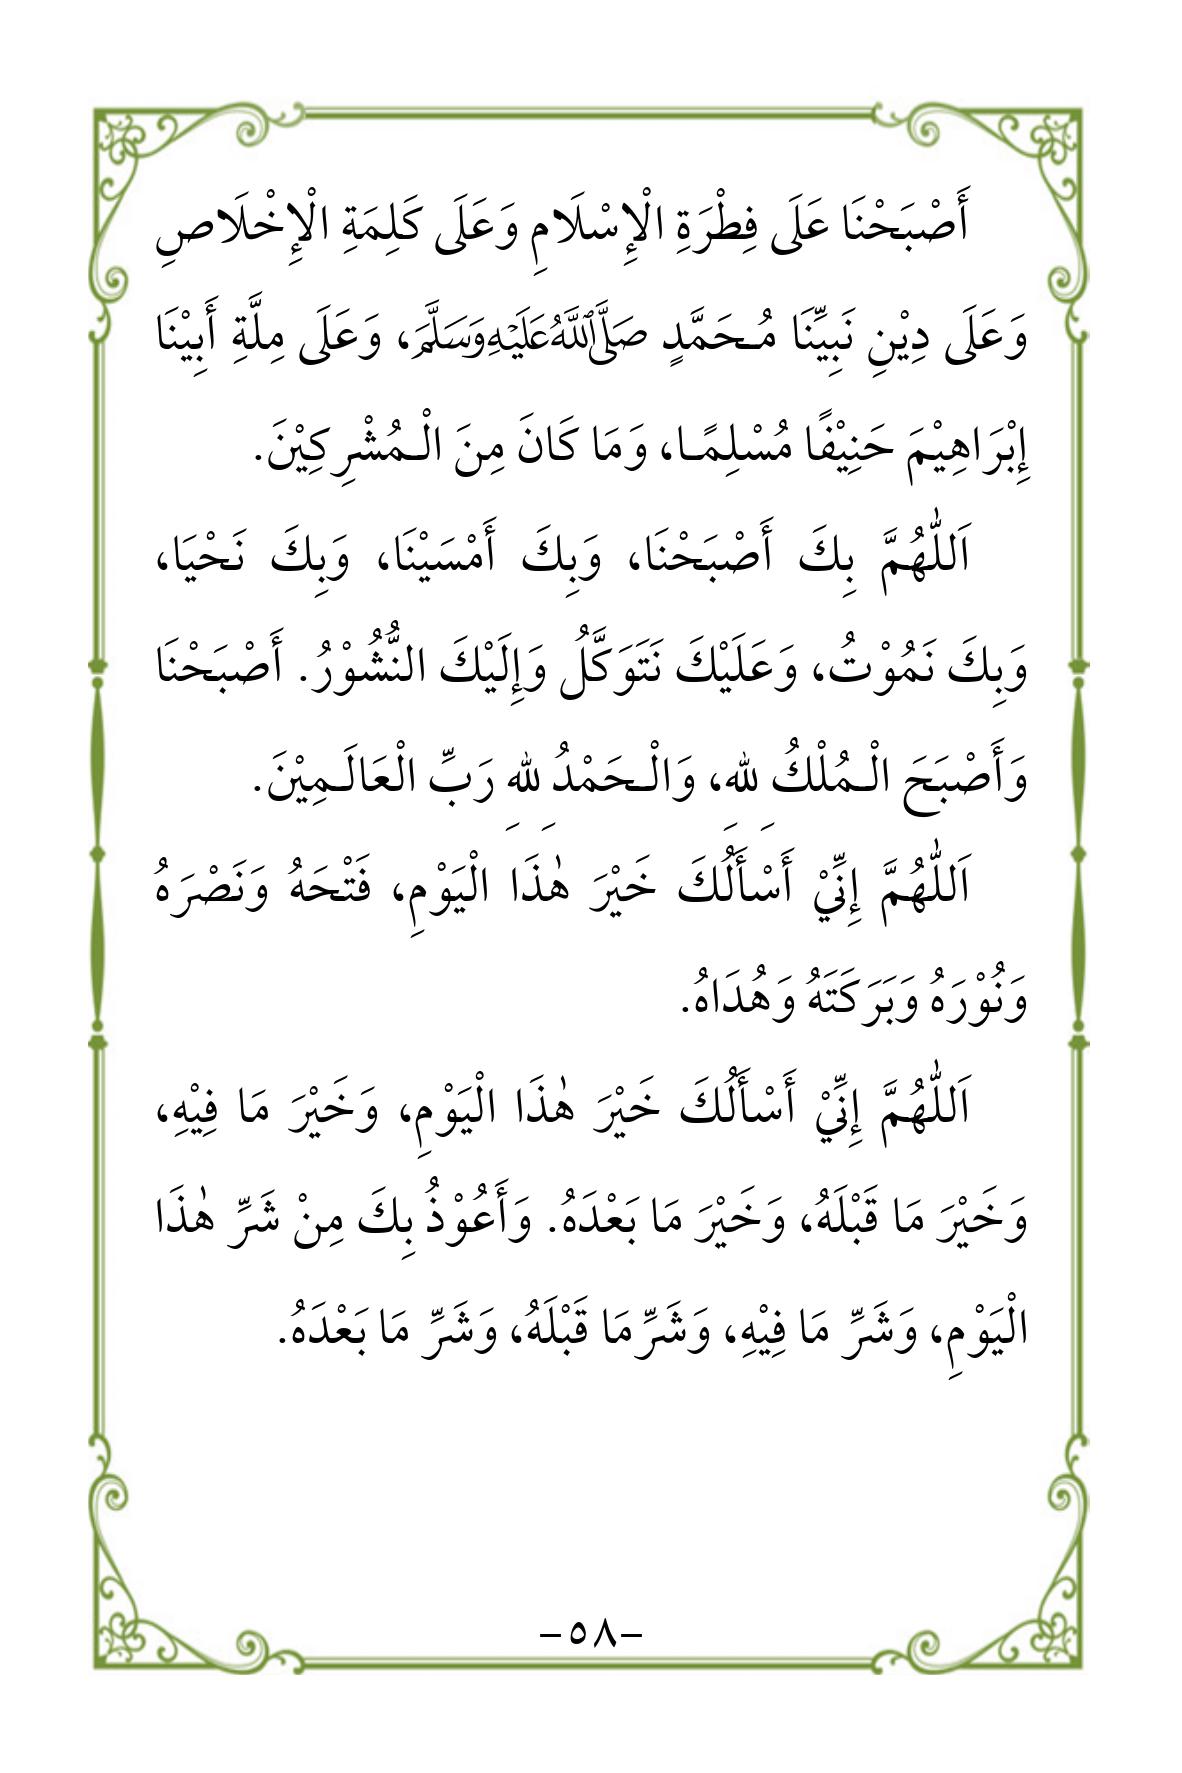 أَصْبَحْنَا عَلَى فِطْرَةِ الْإِسْلَامِ وَعَلَى كَلِمَةِ الْإِخْلَاصِ
وَعَلَى دِيْنِ نَبِيِّنَا مُـحَمَّدٍ صَلَّى اللَّهُ عَلَيْهِ وَسَلَّمَ، وَعَلَى مِلَّةِ أَبِيْنَا
إِبْرَاهِيْمَ حَنِيْفًا مُسْلِمًـا، وَمَا كَانَ مِنَ الْـمُشْرِكِيْنَ.
اَللّٰهُمَّ بِكَ أَصْبَحْنَا، وَبِكَ أَمْسَيْنَا، وَبِكَ نَـحْيَا،
وَبِكَ نَمُوْتُ، وَعَلَيْكَ نَتَوَكَّلُ وَإِلَيْكَ النُّشُوْرُ. أَصْبَحْنَا
وَأَصْبَحَ الْـمُلْكُ لِلهِ، وَالْـحَمْدُ لِلهِ رَبِّ الْعَالَـمِيْنَ.
اَللّٰهُمَّ إِنِّيْ أَسْأَلُكَ خَيْرَ هٰذَا الْيَوْمِ، فَتْحَهُ وَنَصْرَهُ
وَنُوْرَهُ وَبَرَكَتَهُ وَهُدَاهُ.
اَللّٰهُمَّ إِنِّيْ أَسْأَلُكَ خَيْرَ هٰذَا الْيَوْمِ، وَخَيْرَ مَا فِيْهِ،
وَخَيْرَ مَا قَبْلَهُ، وَخَيْرَ مَا بَعْدَهُ. وَأَعُوْذُ بِكَ مِنْ شَرِّ هٰذَا
الْيَوْمِ، وَشَرِّ مَا فِيْهِ، وَشَرِّ مَا قَبْلَهُ، وَشَرِّ مَا بَعْدَهُ.
-٥٨-